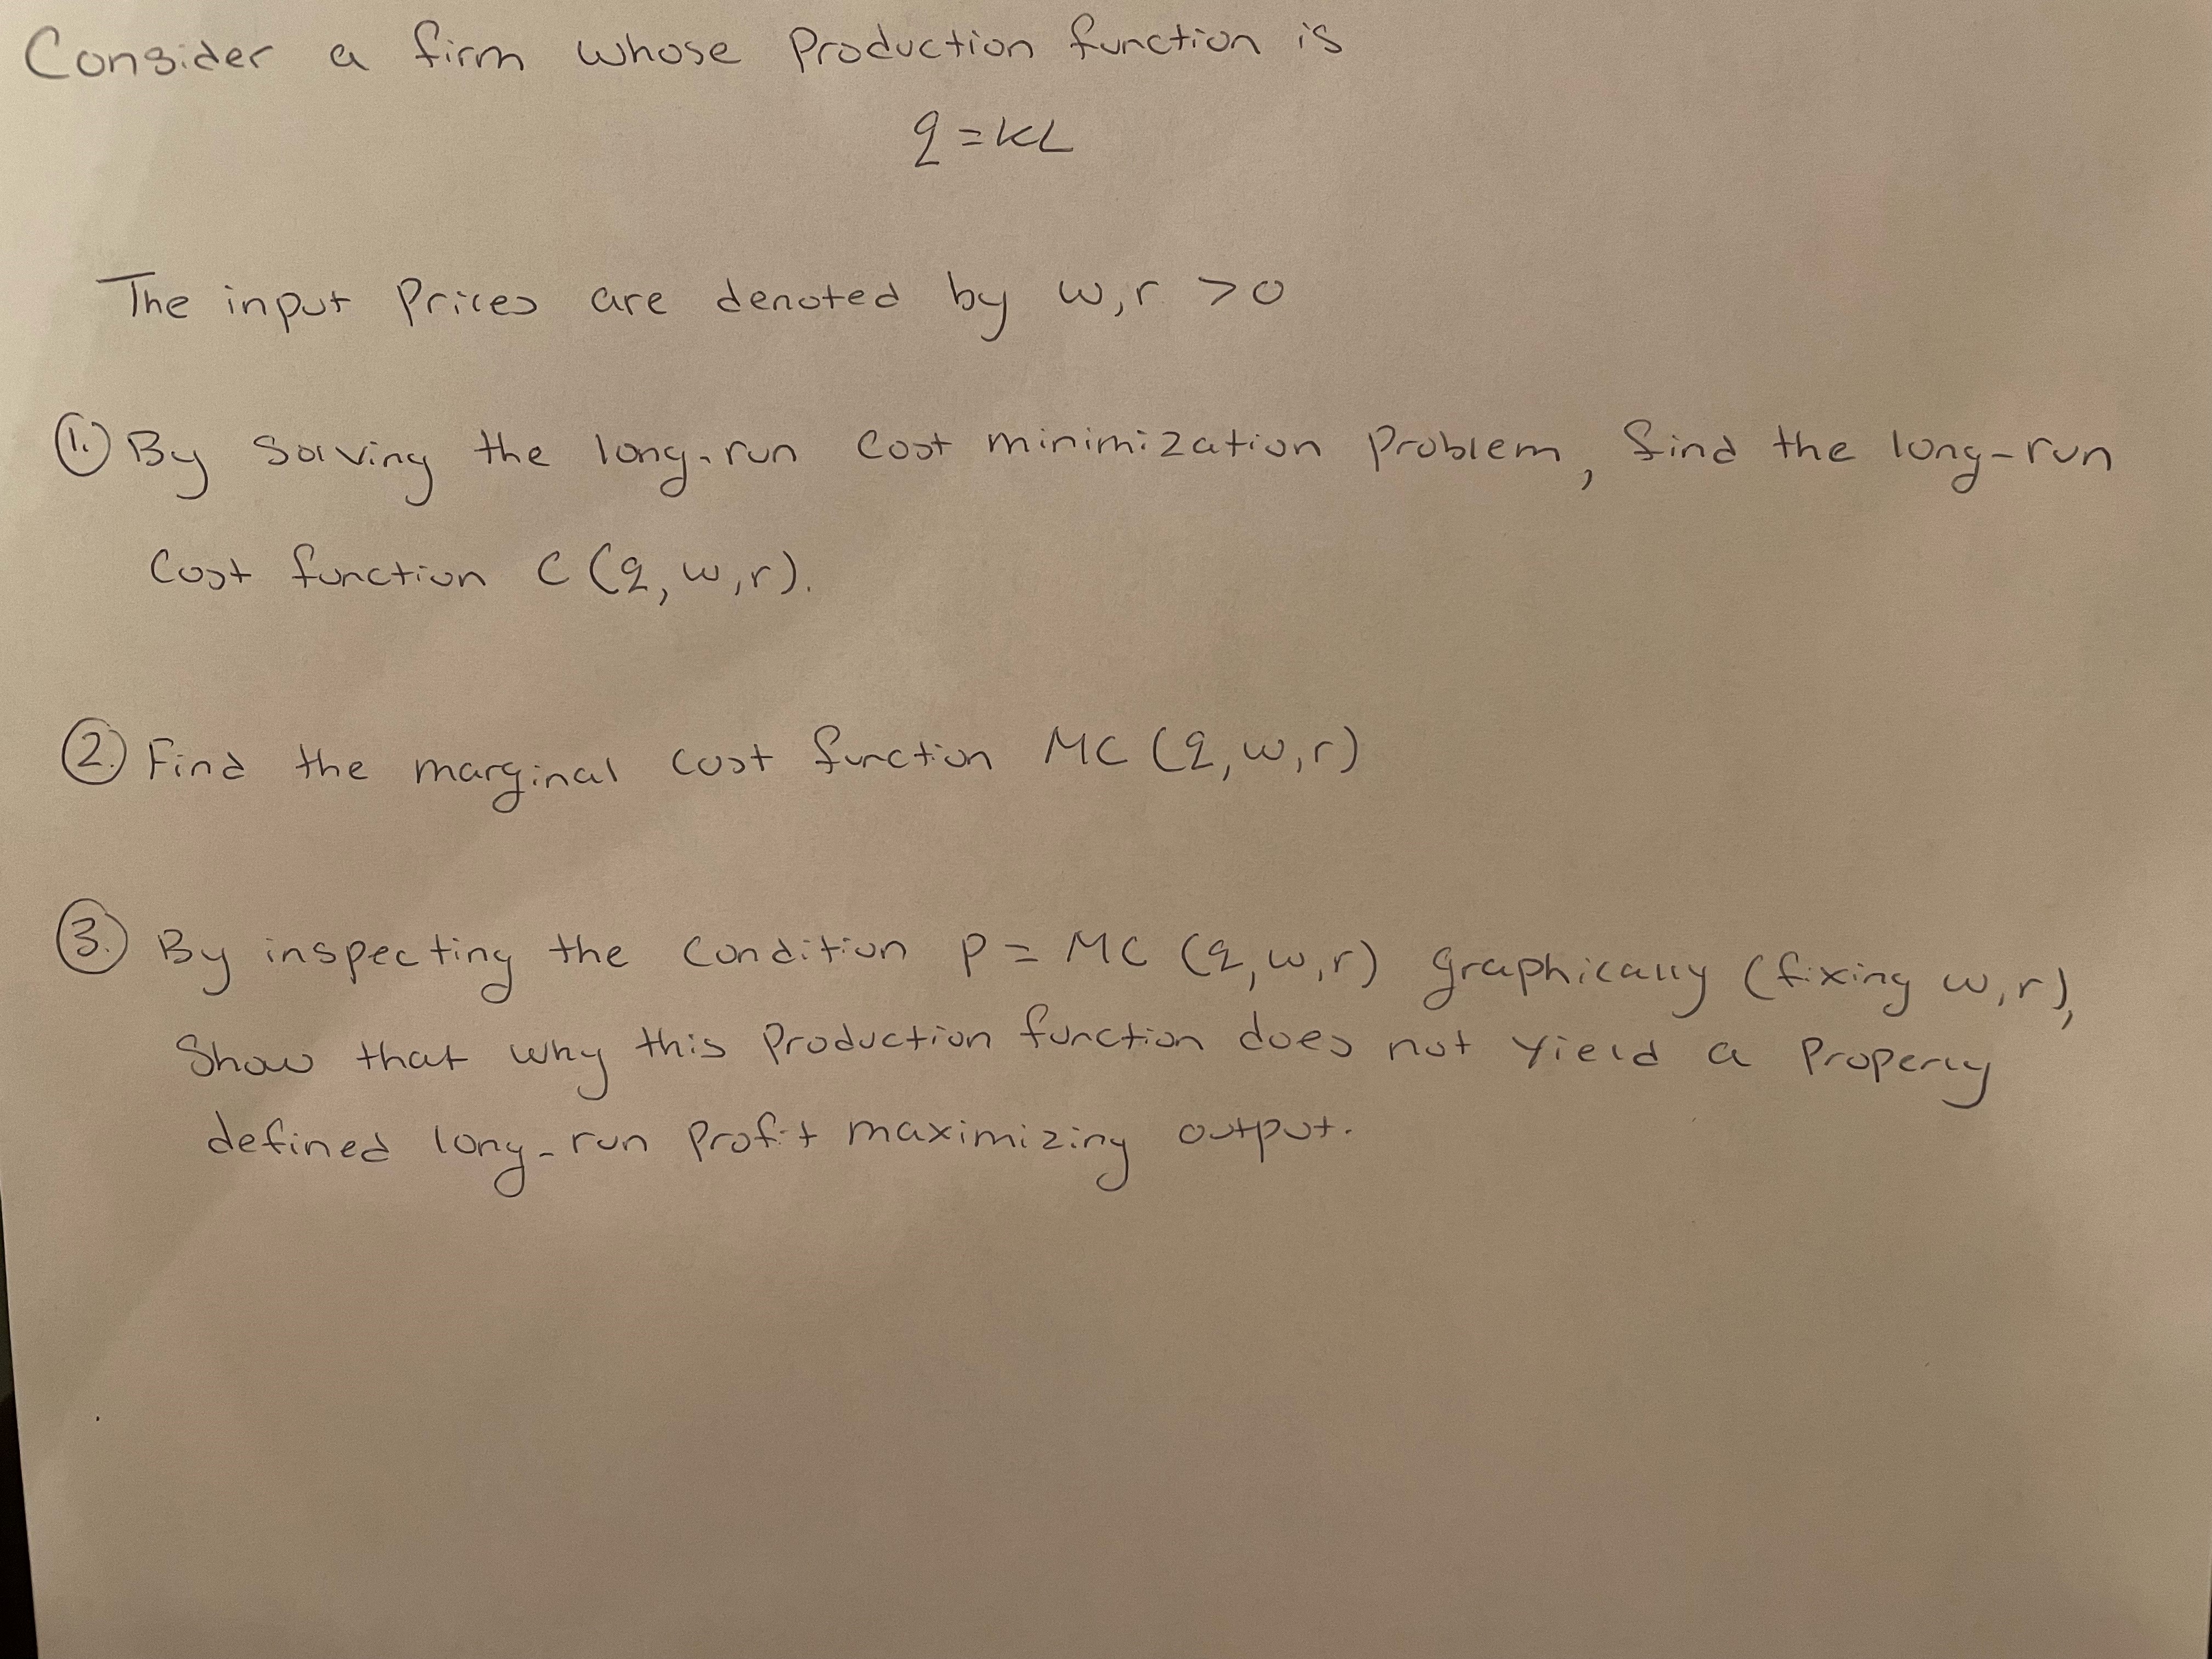 Consider a firm whose Production function is
q = KL
The input Prices are denoted by w,r >0
1. By Solving the long-run Cost minimization Problem, find the long-run
Cost function C(q,w,r).
2. Find the marginal cost function MC (q,w,r)
3. By inspecting the Condition P = MC (q,w,r) graphically (fixing w,r),
Show that why this Production function does not Yield a Properly
defined long-run Profit maximizing output.